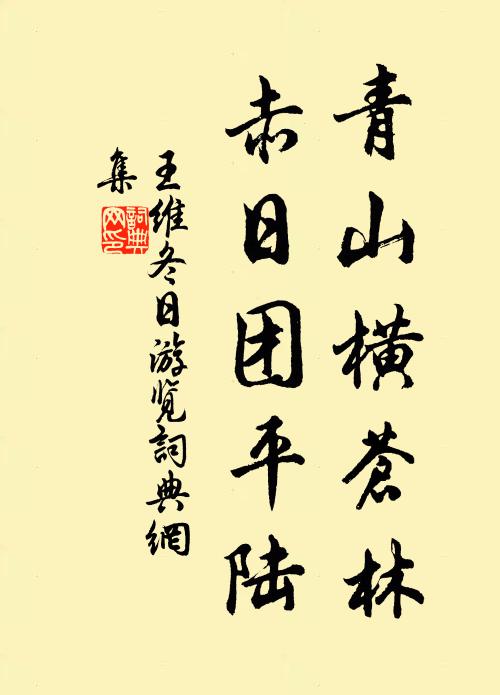 青山横蒼林
赤日团平陆
王维冬日游览詞典網
集
詞典
网印